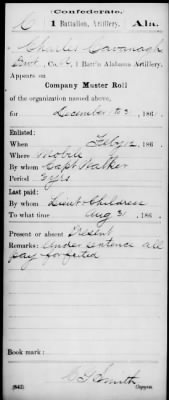 Confederate.
C 1 Battalion, Artillery. Ala.
Charles Cavanagh
Co. , 1 Batt'n Alabama Artillery.
Appears on
Company Muster Roll
of the organization named above,
for December 23, 186 .
Enlisted:
When , 186 .
Where Mobile
By whom Capt Walker
Period 3 yrs
Last paid:
By whom Lieut Children
To what time Aug 31, 186 .
Present or absent Present
Remarks: Under sentence all
pay forfeited
Book mark:
(642) Smith
Copyist.